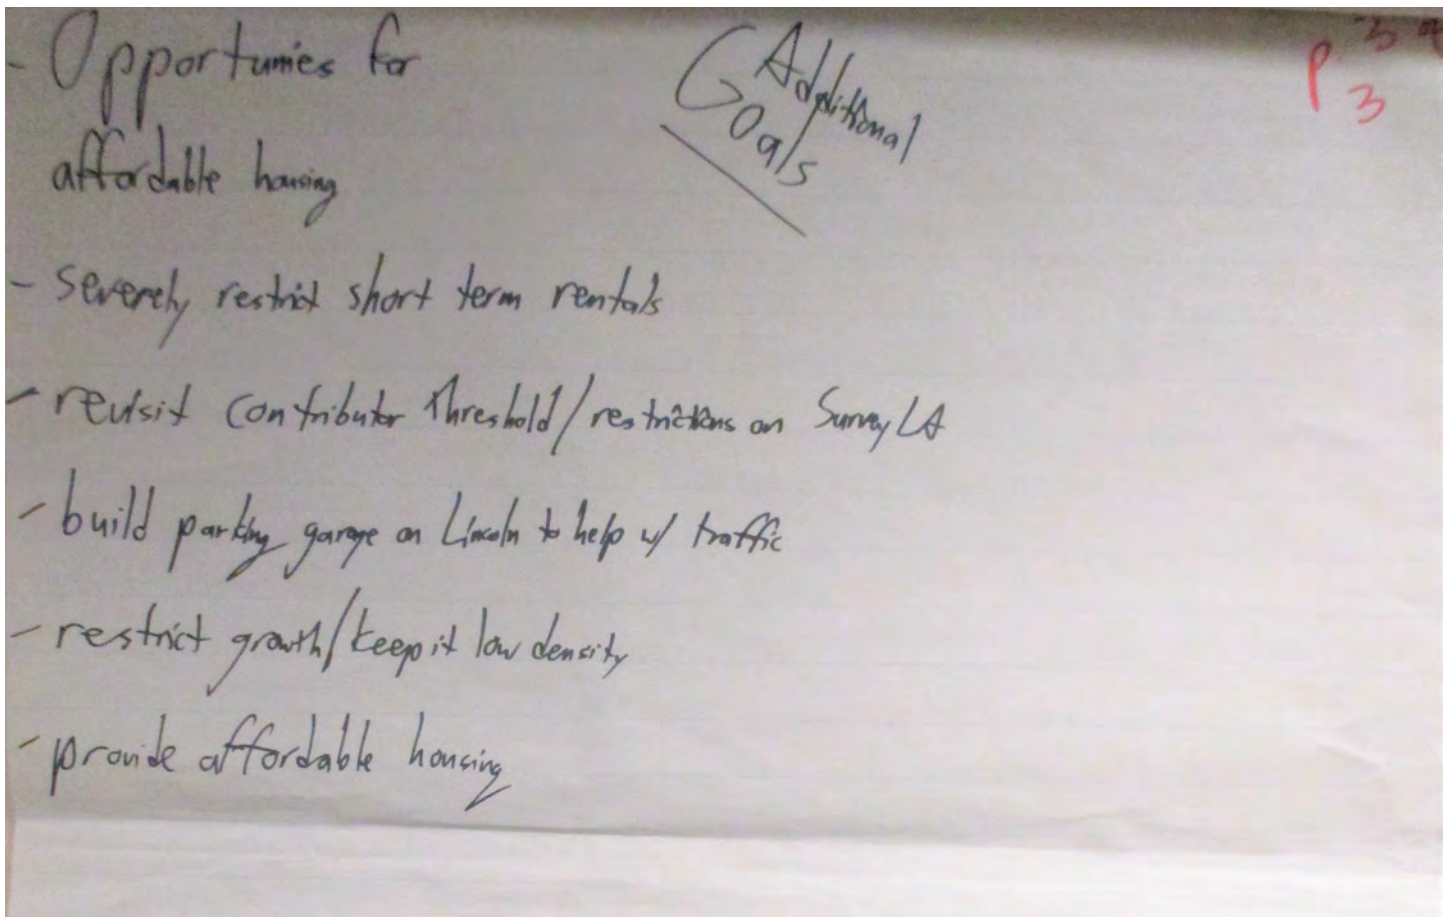 - Opportunies for
affordable housing
Additional
Goals
p. 3
- severely restrict short term rentals
- revisit contributor threshold/restrictions on Survey LA
- build parking garage on Lincoln to help w/ traffic
- restrict growth/keep it low density
- provide affordable housing